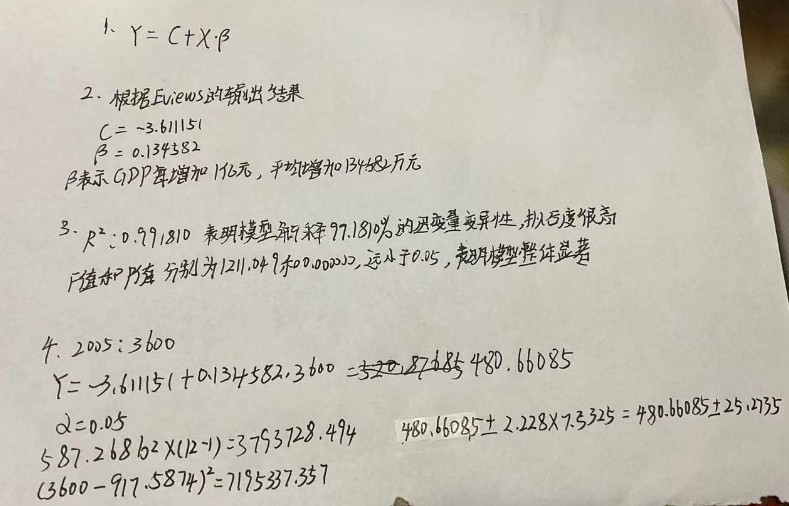 1. Y = C+X·β
2. 根据Eviews的输出结果
C = -3.611151
β = 0.134582
β表示GDP每增加1亿元，平均增加134582万元
3. R²:0.991810 表明模型解释97.1810%的因变量变异性，拟合度很高
F值和P值 分别为1211.049和0.00000，远小于0.05，表明模型整体显著
4. 2005:3600
Y = -3.611151+0.134582·3600 = 480.66085
α=0.05
587.2686²×(12-1)=3793728.494
480.66085± 2.228×7.5325 = 480.66085±25.2735
(3600-917.5874)²=7195337.357